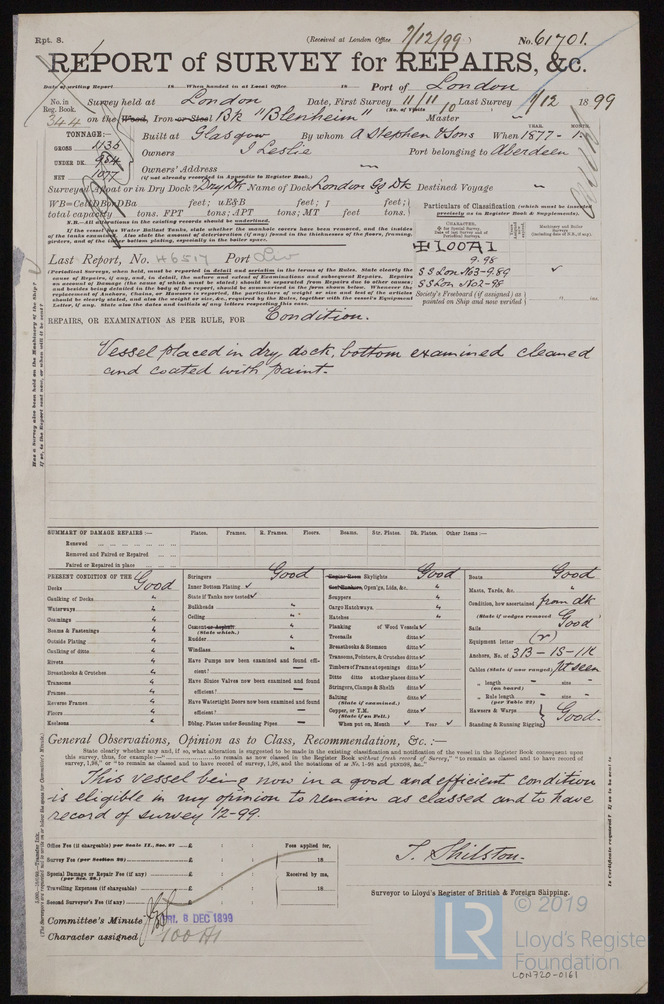 Rpt. 8.
(Received at London Office 7/12/99)
No. 61701.
REPORT of SURVEY for REPAIRS, &c.
Date of writing Report 18 When handed in at Local Office 18 Port of London
No. in Reg. Book. 344
Survey held at London Date, First Survey 11/11 Last Survey 7/12 1899
(No. of Visits 10
on the Wood, Iron or Steel Bk "Blenheim" Master "
TONNAGE:—
GROSS 1135
UNDER DK. 984
NET 1077
Built at Glasgow By whom A Stephen & Sons When 1877-1
YEAR. MONTH.
Owners J Leslie Port belonging to Aberdeen
Owners' Address "
(if not already recorded in Appendix to Register Book.)
Surveyed Afloat or in Dry Dock? Dry Dk Name of Dock London Gg Dk Destined Voyage "
WB=CellDBorDBa feet; uE&B feet; f feet;
total capacity tons. FPT tons; APT tons; MT feet tons.
N.B.—All alterations in the existing records should be underlined.
If the vessel has Water Ballast Tanks, state whether the manhole covers have been removed, and the insides
of the tanks examined. Also state the amount of deterioration (if any) found in the thicknesses of the floors, framing,
girders, and of the inner bottom plating, especially in the boiler space.
Particulars of Classification (which must be inserted
precisely as in Register Book & Supplements).
CHARACTER.
Machinery and Boiler Surveys
100A1
9.98
S S Lon No3-9.89
S S Lon No2-98
Society's Freeboard (if assigned) as
painted on Ship and now verified
Last Report, No. 46517 Port Liv
(Periodical Surveys, when held, must be reported in detail and seriatim in the terms of the Rules. State clearly the
cause of Repairs, if any, and, in detail, the nature and extent of Examinations and subsequent Repairs. Repairs
on account of Damage (the cause of which must be stated) should be separated from Repairs due to other causes;
and besides being detailed in the body of the report, should be summarized in the form shown below. Whenever the
replacement of Anchors, Chains, or Hawsers is reported, the particulars of weight or size and test of the articles
should be clearly stated, and also the weight or size, &c., required by the Rules, together with the vessel's Equipment
Letter, if any. State also the dates and initials of any letters respecting this case.
REPAIRS, OR EXAMINATION AS PER RULE, FOR Condition.
Vessel placed in dry dock, bottom examined cleaned
and coated with paint.
SUMMARY OF DAMAGE REPAIRS:— Plates. Frames. R. Frames. Floors. Beams. Str. Plates. Dk. Plates. Other Items:—
Renewed
Removed and Faired or Repaired
Faired or Repaired in place
PRESENT CONDITION OF THE Good
Decks
Caulking of Decks "
Waterways "
Coamings "
Beams & Fastenings "
Outside Plating "
Caulking of ditto "
Rivets "
Breasthooks & Crutches "
Transoms "
Frames "
Reverse Frames "
Floors "
Keelsons "
Stringers Good
Inner Bottom Plating ✓
State if Tanks now tested ✓
Bulkheads "
Ceiling "
Cement or Asphalt "
(State which.)
Rudder "
Windlass "
Have Pumps now been examined and found effi-
cient? —
Have Sluice Valves now been examined and found
efficient? —
Have Watertight Doors now been examined and found
efficient? —
Dblng. Plates under Sounding Pipes —
Engine Room Skylights Good
Coal Bunkers, Open'gs, Lids, &c. "
Scuppers "
Cargo Hatchways "
Hatches "
Planking of Wood Vessels ✓
Treenails ditto ✓
Breasthooks & Stemson ditto ✓
Transoms, Pointers, & Crutches ditto ✓
Timbers of Frame at openings ditto ✓
Ditto ditto at other places ditto ✓
Stringers, Clamps & Shelfs ditto ✓
Salting ditto ✓
(State if examined.)
Copper, or Y.M. ditto ✓
(State if on Felt.)
When put on, Month ✓ Year ✓
Boats Good
Masts, Yards, &c. "
Condition, how ascertained from dk
(State if wedges removed)
Sails Good
Equipment letter (r)
Anchors, No. of 3B-1S-1K
Cables (State if now ranged) pt seen
" length " size "
(on board)
" Rule length " size "
(per Table 22)
Hawsers & Warps
Standing & Running Rigging Good.
General Observations, Opinion as to Class, Recommendation, &c.:—
State clearly whether any and, if so, what alteration is suggested to be made in the existing classification and notification of the vessel in the Register Book consequent upon
this survey, thus, for example:—" to remain as now classed in the Register Book without fresh record of Survey," "to remain as classed and to have record of
survey, 1,98," or "to remain as classed and to have record of survey, 1,98, and the notations of ss No. 1-98 and pts1098, &c."
This vessel being now in a good and efficient condition
is eligible in my opinion to remain as classed and to have
record of survey 12-99.
Office Fee (if chargeable) per Scale II., Sec. 27 £ : : Fees applied for,
Survey Fee (per Section 28) £ : : 18
Special Damage or Repair Fee (if any) £ : : Received by me,
(per Sec. 28.)
Travelling Expenses (if chargeable) £ : : 18
Second Surveyor's Fee (if any) £ : :
T. Shilston.
Surveyor to Lloyd's Register of British & Foreign Shipping.
Committee's Minute FRI. 8 DEC 1899
Character assigned 100A1
LR
© 2019
Lloyd's Register
Foundation
LON720-0161